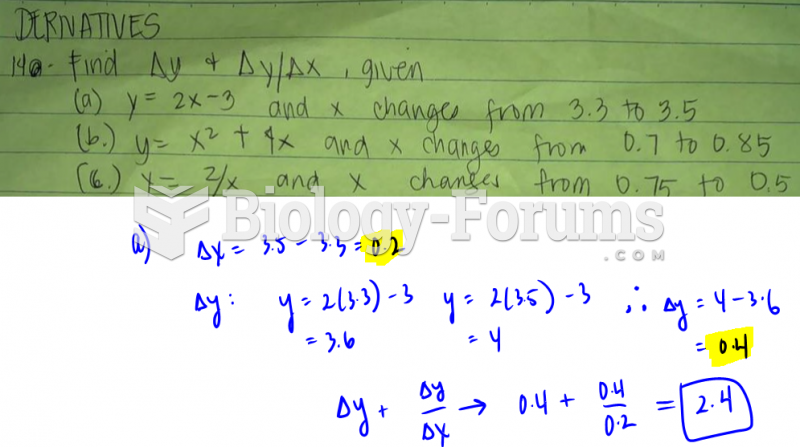 DERIVATIVES
14a. Find Δy + Δy/Δx, given
(a) y = 2x-3 and x changes from 3.3 to 3.5
(b.) y = x² + 4x and x changes from 0.7 to 0.85
(c.) y = 2/x and x changes from 0.75 to 0.5
Biology-Forums
.COM
a) Δx = 3.5 - 3.3 = 0.2
Δy: y = 2(3.3) - 3 y = 2(3.5) - 3 ∴ Δy = 4 - 3.6
= 3.6 = 4 = 0.4
Δy + Δy/Δx → 0.4 + 0.4/0.2 = 2.4